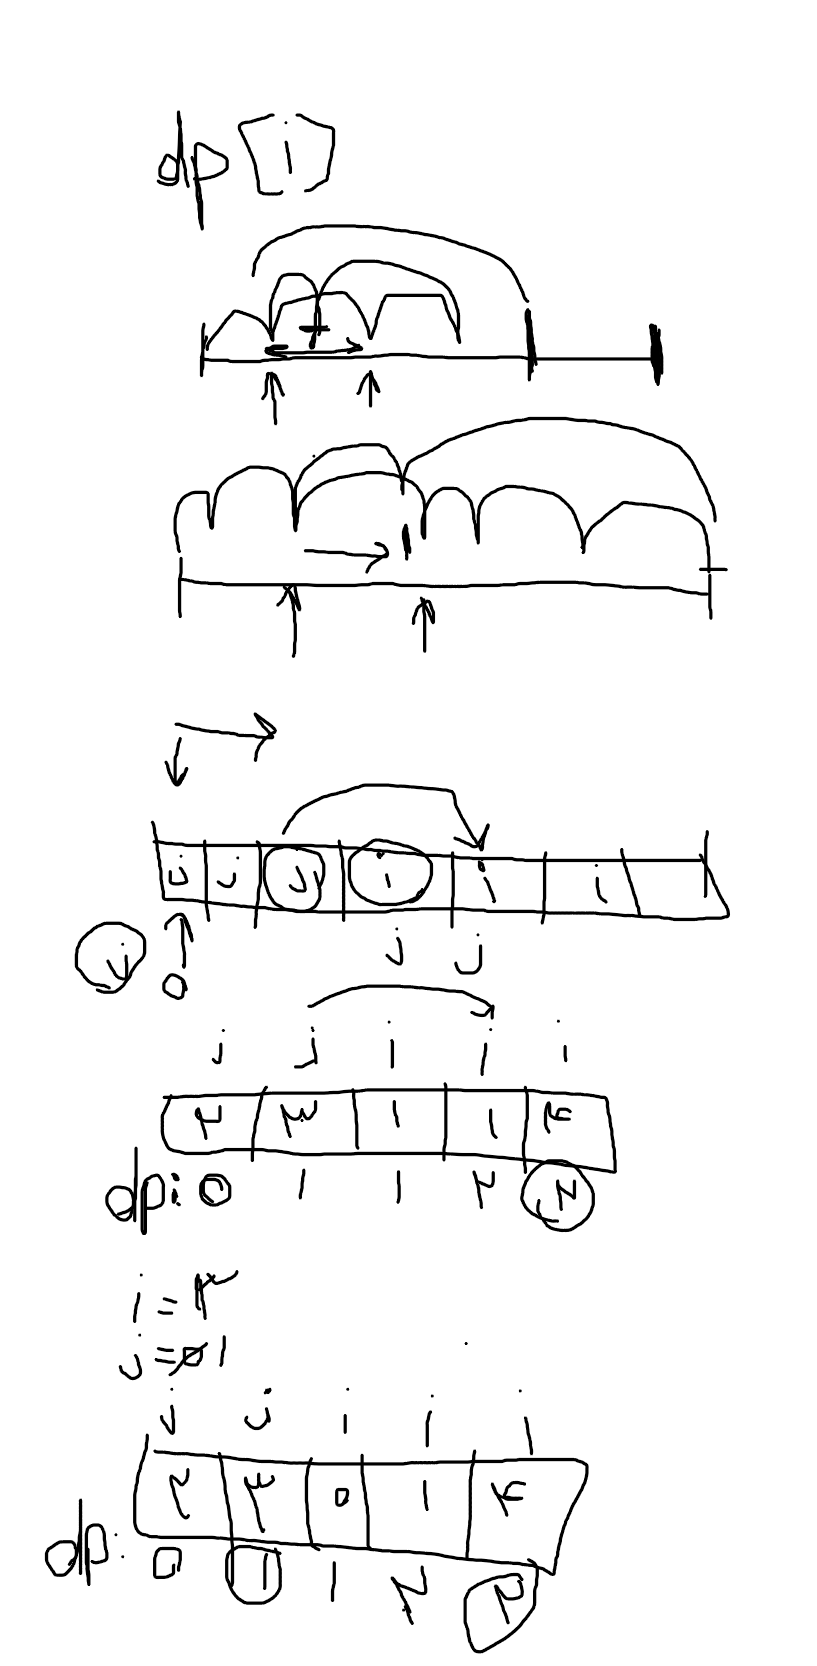 dp [i]
j j j i i i
j j j
0
j j i i i
۲ ۳ ۱ ۱ ۴
dp: 0 ۱ ۱ ۲ ۲
i = ۴
j = 0 ۱
j j i i i
۲ ۳ 0 ۱ ۴
dp: 0 ۱ ۱ ۲ ۲